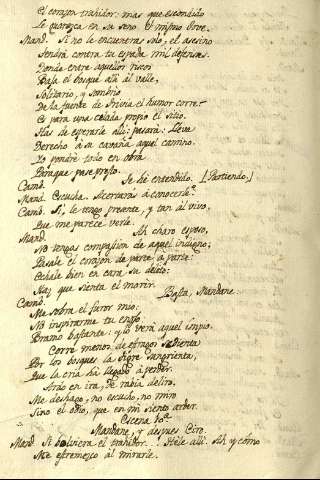 El corazon trahidor: mas que escondido
Le guarezca en su seno el mismo Jove.
Mand. Si no le encuentras solo, el asesino
Tendrá contra tu espada mil defensas.
Donde entre aquellos riscos
Baja el bosque allá al valle,
Solitario, y sombrio
De la fuente de Trivia el humor corre.
Es para una celada propio el sitio.
Has de esperarle alli: pasará: lleva
Derecho á su cavaña aquel camino.
Yo pondré todo en obra
Paraque pase presto.
Camb. Te hé entendido. [Partiendo.]
Mand. Escucha. Acertarás á conocerle?
Camb. Sí, le tengo presente, y tan al vivo,
Que me parece verle.
Mand. Ah charo esposo,
No tengas compasion de aquel indigno;
Pasale el corazon de parte á parte:
Echale bien en cara su delito:
Haz que sienta el morir.
Camb. Basta, Mandane.
Me sobra el furor mio:
No inspirarme tu enojo:
Bramo bastante: yo verá aquel impio.
Corre menos de estragos sedienta
Por los bosques la tigre sangrienta,
Que la cria há llegado á perder.
Ardo en ira, de rabia deliro.
Me deshago, no escucho, no miro
Sino el odio, que en mi siento arder.
Escena 10ª
Mandane, y despues Ciro.
Mand. Si bolviera el trahidor... Héle alli. Ah y cómo
Me estremezco al mirarle.